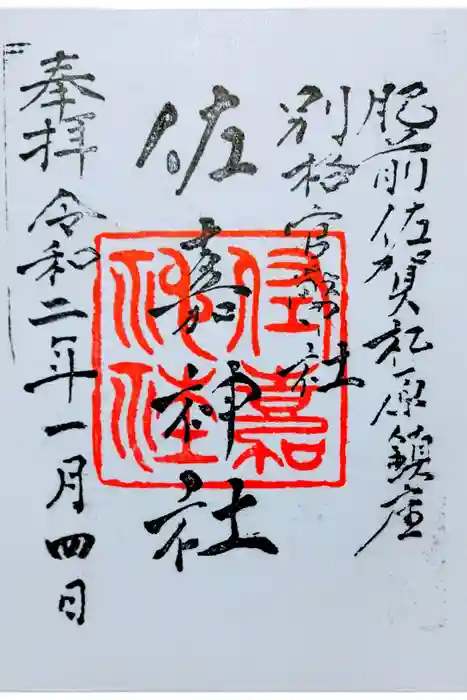 肥前佐賀松原鎮座
別格官幣社
佐嘉神社
佐嘉神社
奉拝 令和二年一月四日